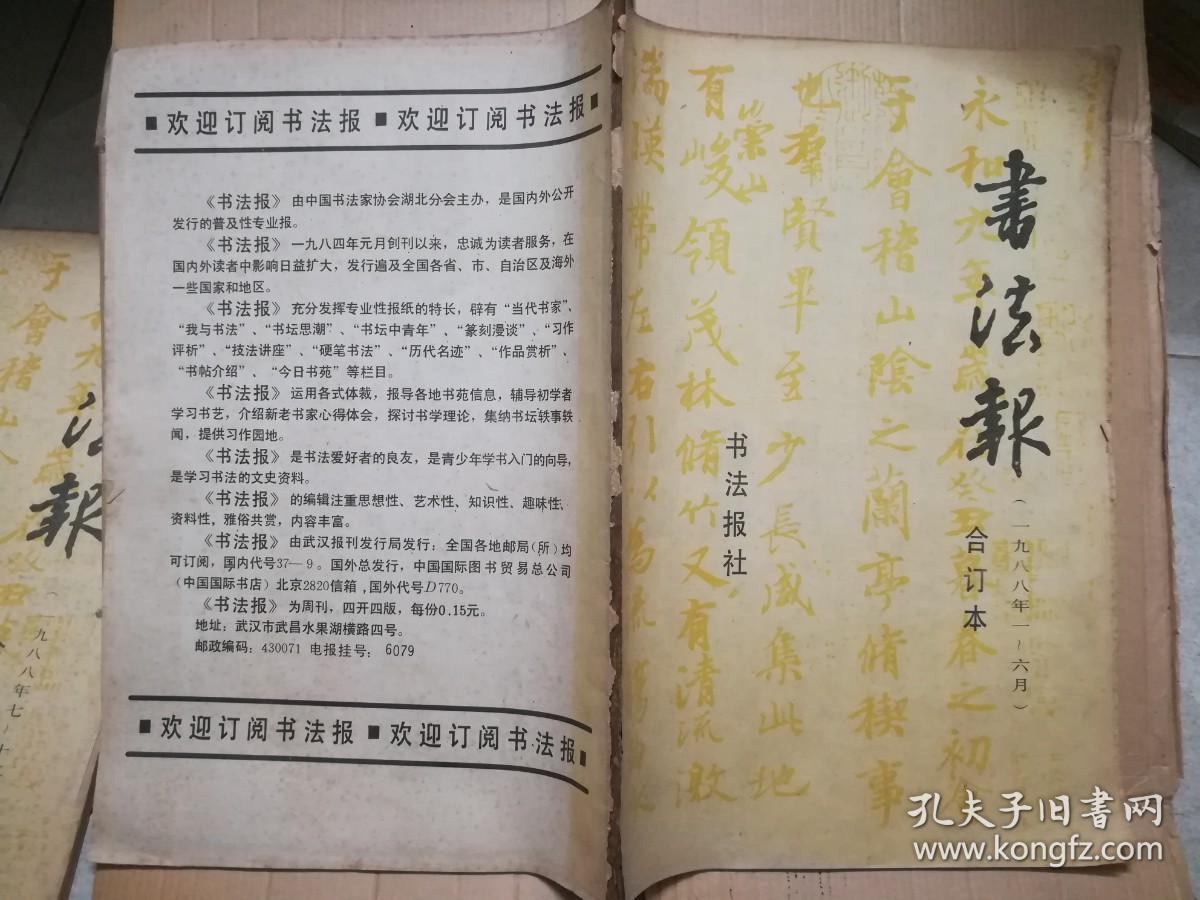 ■ 欢迎订阅书法报 ■ 欢迎订阅书法报 ■
《书法报》 由中国书法家协会湖北分会主办，是国内外公开
发行的普及性专业报。
《书法报》 一九八四年元月创刊以来，忠诚为读者服务，在
国内外读者中影响日益扩大，发行遍及全国各省、市、自治区及海外
一些国家和地区。
《书法报》 充分发挥专业性报纸的特长，辟有“当代书家”、
“我与书法”、“书坛思潮”、“书坛中青年”、“篆刻漫谈”、“习作
评析”、“技法讲座”、“硬笔书法”、“历代名迹”、“作品赏析”、
“书帖介绍”、“今日书苑”等栏目。
《书法报》 运用各式体裁，报导各地书苑信息，辅导初学者
学习书艺，介绍新老书家心得体会，探讨书学理论，集纳书坛轶事轶
闻，提供习作园地。
《书法报》 是书法爱好者的良友，是青少年学书入门的向导，
是学习书法的文史资料。
《书法报》 的编辑注重思想性、艺术性、知识性、趣味性、
资料性，雅俗共赏，内容丰富。
《书法报》 由武汉报刊发行局发行；全国各地邮局（所）均
可订阅，国内代号37—9。国外总发行，中国国际图书贸易总公司
（中国国际书店）北京2820信箱，国外代号D770。
《书法报》 为周刊，四开四版，每份0.15元。
地址：武汉市武昌水果湖横路四号。
邮政编码：430071 电报挂号：6079
■ 欢迎订阅书法报 ■ 欢迎订阅书法报 ■
書法報
（一九八八年一～六月）
合订本
书法报社
永和九年歲在癸丑暮春之初會
于會稽山陰之蘭亭脩稧事
也羣賢畢至少長咸集此地
有崇山峻領茂林脩竹又有清流激
湍暎帶左右引以為流觴曲
法報
（一九八八年七～十
于會稽山
九年歲
孔夫子旧书网
www.kongfz.com